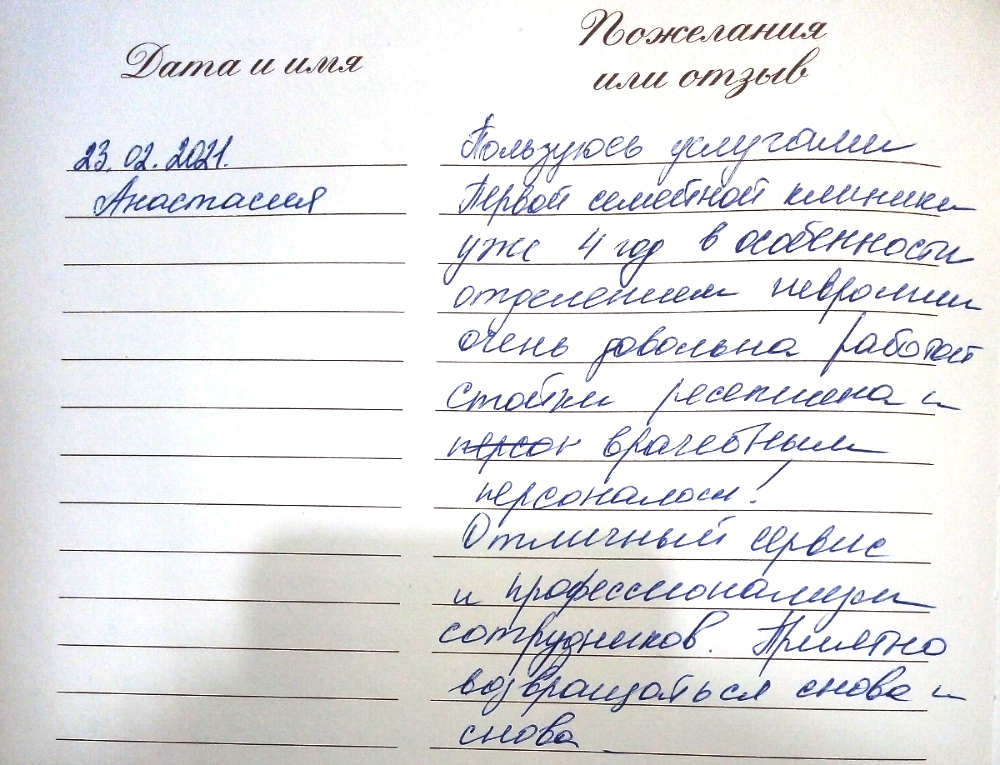 Дата и имя
Пожелания
или отзыв
23.02.2021.
Анастасия
Пользуюсь услугами
Первой семейной клиники
уже 4 год в особенности
отделением неврологии
очень довольна работой
стойки ресепшена и
персон врачебным
персоналом!
Отличный сервис
и профессионализм
сотрудников. Приятно
возвращаться снова и
снова